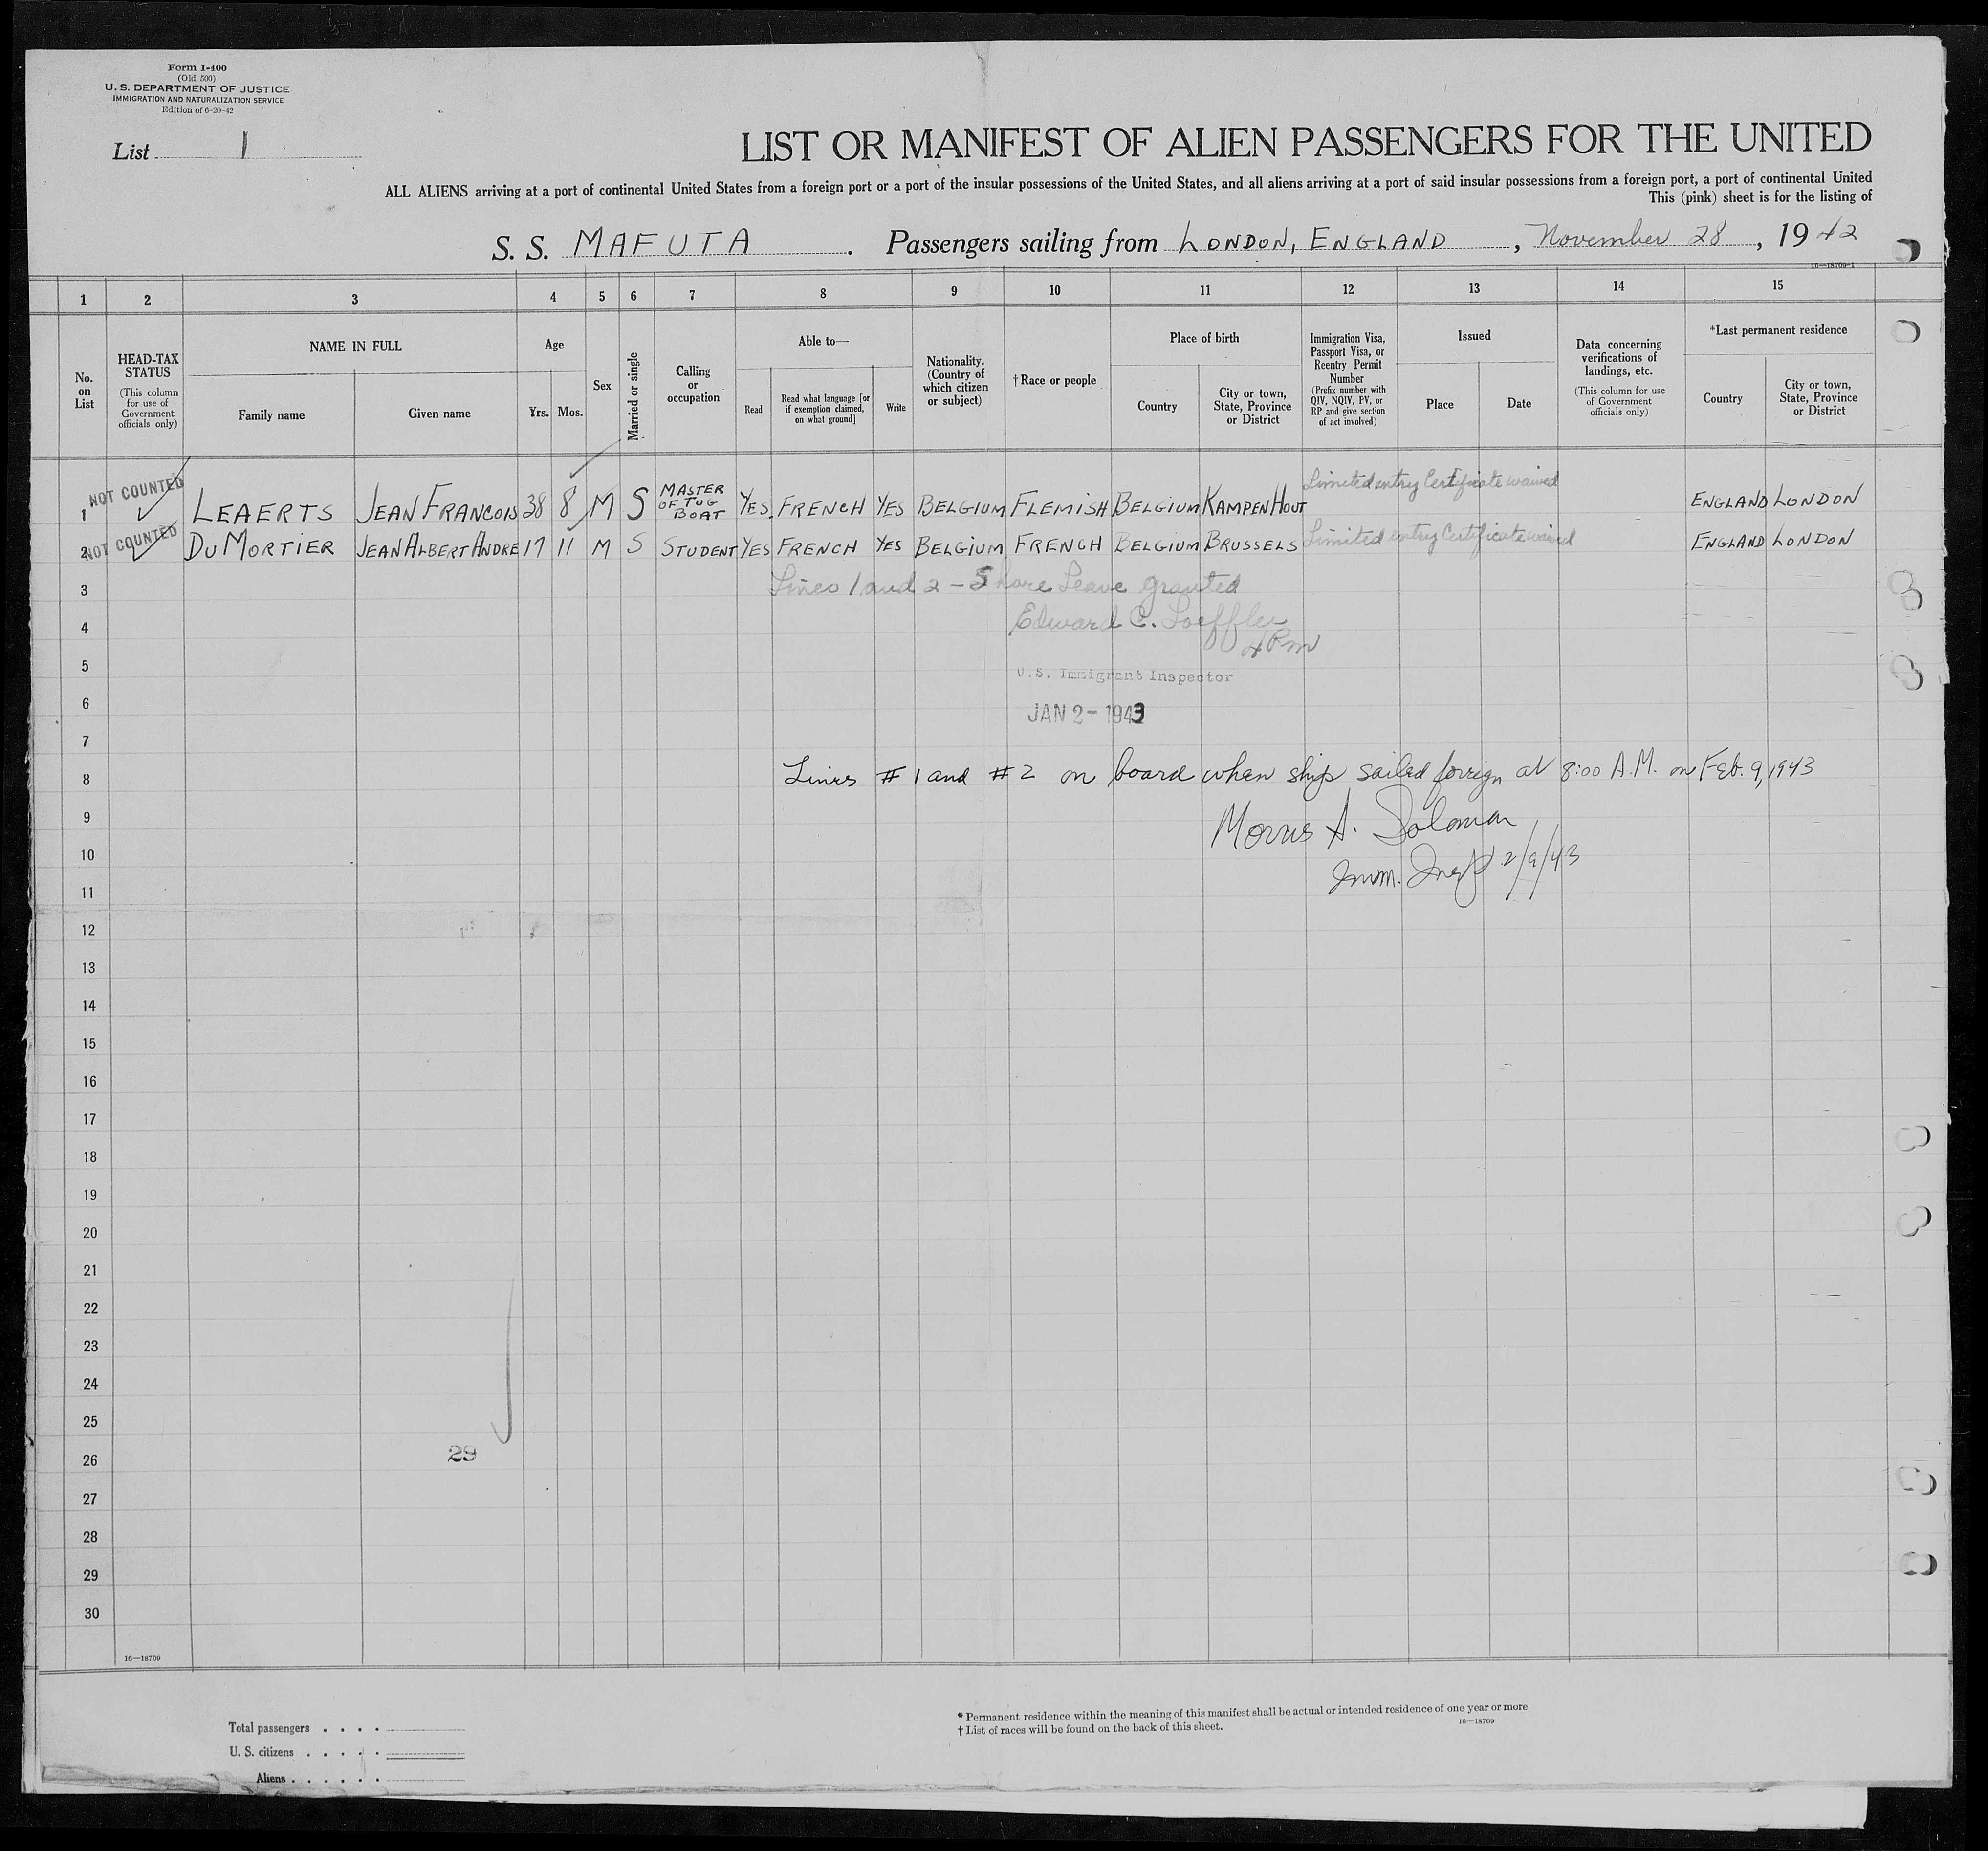 Form I-400
(Old 500)
U. S. DEPARTMENT OF JUSTICE
IMMIGRATION AND NATURALIZATION SERVICE
Edition of 6-20-42
List 1
LIST OR MANIFEST OF ALIEN PASSENGERS FOR THE UNITED
ALL ALIENS arriving at a port of continental United States from a foreign port or a port of the insular possessions of the United States, and all aliens arriving at a port of said insular possessions from a foreign port, a port of continental United
This (pink) sheet is for the listing of
S. S. MAFUTA . Passengers sailing from LONDON, ENGLAND , November 28 , 19 42
16—18709-1
1 2 3 4 5 6 7 8 9 10 11 12 13 14 15
No. on List
HEAD-TAX STATUS (This column for use of Government officials only)
NAME IN FULL
Family name Given name
Age
Yrs. Mos.
Sex
Married or single
Calling or occupation
Able to—
Read Read what language [or if exemption claimed, on what ground] Write
Nationality. (Country of which citizen or subject)
†Race or people
Place of birth
Country City or town, State, Province or District
Immigration Visa, Passport Visa, or Reentry Permit Number (Prefix number with QIV, NQIV, PV, or RP and give section of act involved)
Issued
Place Date
Data concerning verifications of landings, etc. (This column for use of Government officials only)
*Last permanent residence
Country City or town, State, Province or District
1 NOT COUNTED LEAERTS JEAN FRANCOIS 38 8 M S MASTER OF TUG BOAT YES FRENCH YES BELGIUM FLEMISH BELGIUM KAMPENHOUT Limited entry Certificate waived ENGLAND LONDON
2 NOT COUNTED DUMORTIER JEAN ALBERT ANDRE 17 11 M S STUDENT YES FRENCH YES BELGIUM FRENCH BELGIUM BRUSSELS Limited entry Certificate waived ENGLAND LONDON
3 Lines 1 and 2 - Shore Leave granted
4 Edward C. Loeffler
4 Pm
5 U.S. Immigrant Inspector
6 JAN 2 - 1943
7
8 Lines #1 and #2 on board when ship sailed foreign at 8:00 A.M. on Feb. 9, 1943
9 Morris A. Soloman
10 Imm. Insp 2/9/43
11
12
13
14
15
16
17
18
19
20
21
22
23
24
25
26 29
27
28
29
30
16—18709
Total passengers . . . .
U. S. citizens . . . . .
Aliens . . . . . .
* Permanent residence within the meaning of this manifest shall be actual or intended residence of one year or more.
† List of races will be found on the back of this sheet.
16—18709